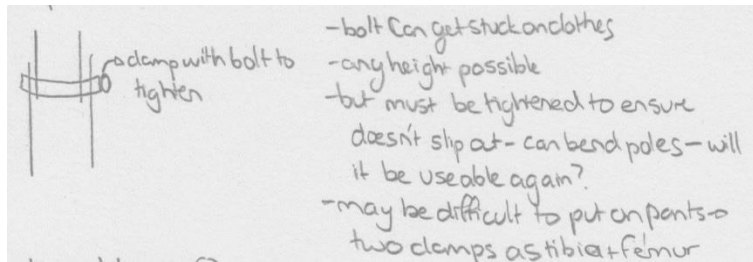 clamp with bolt to
tighten
-bolt can get stuck on clothes
-any height possible
-but must be tightened to ensure
doesn't slip out - can bend poles - will
it be useable again?
-may be difficult to put on pants→
two clamps as tibia + femur